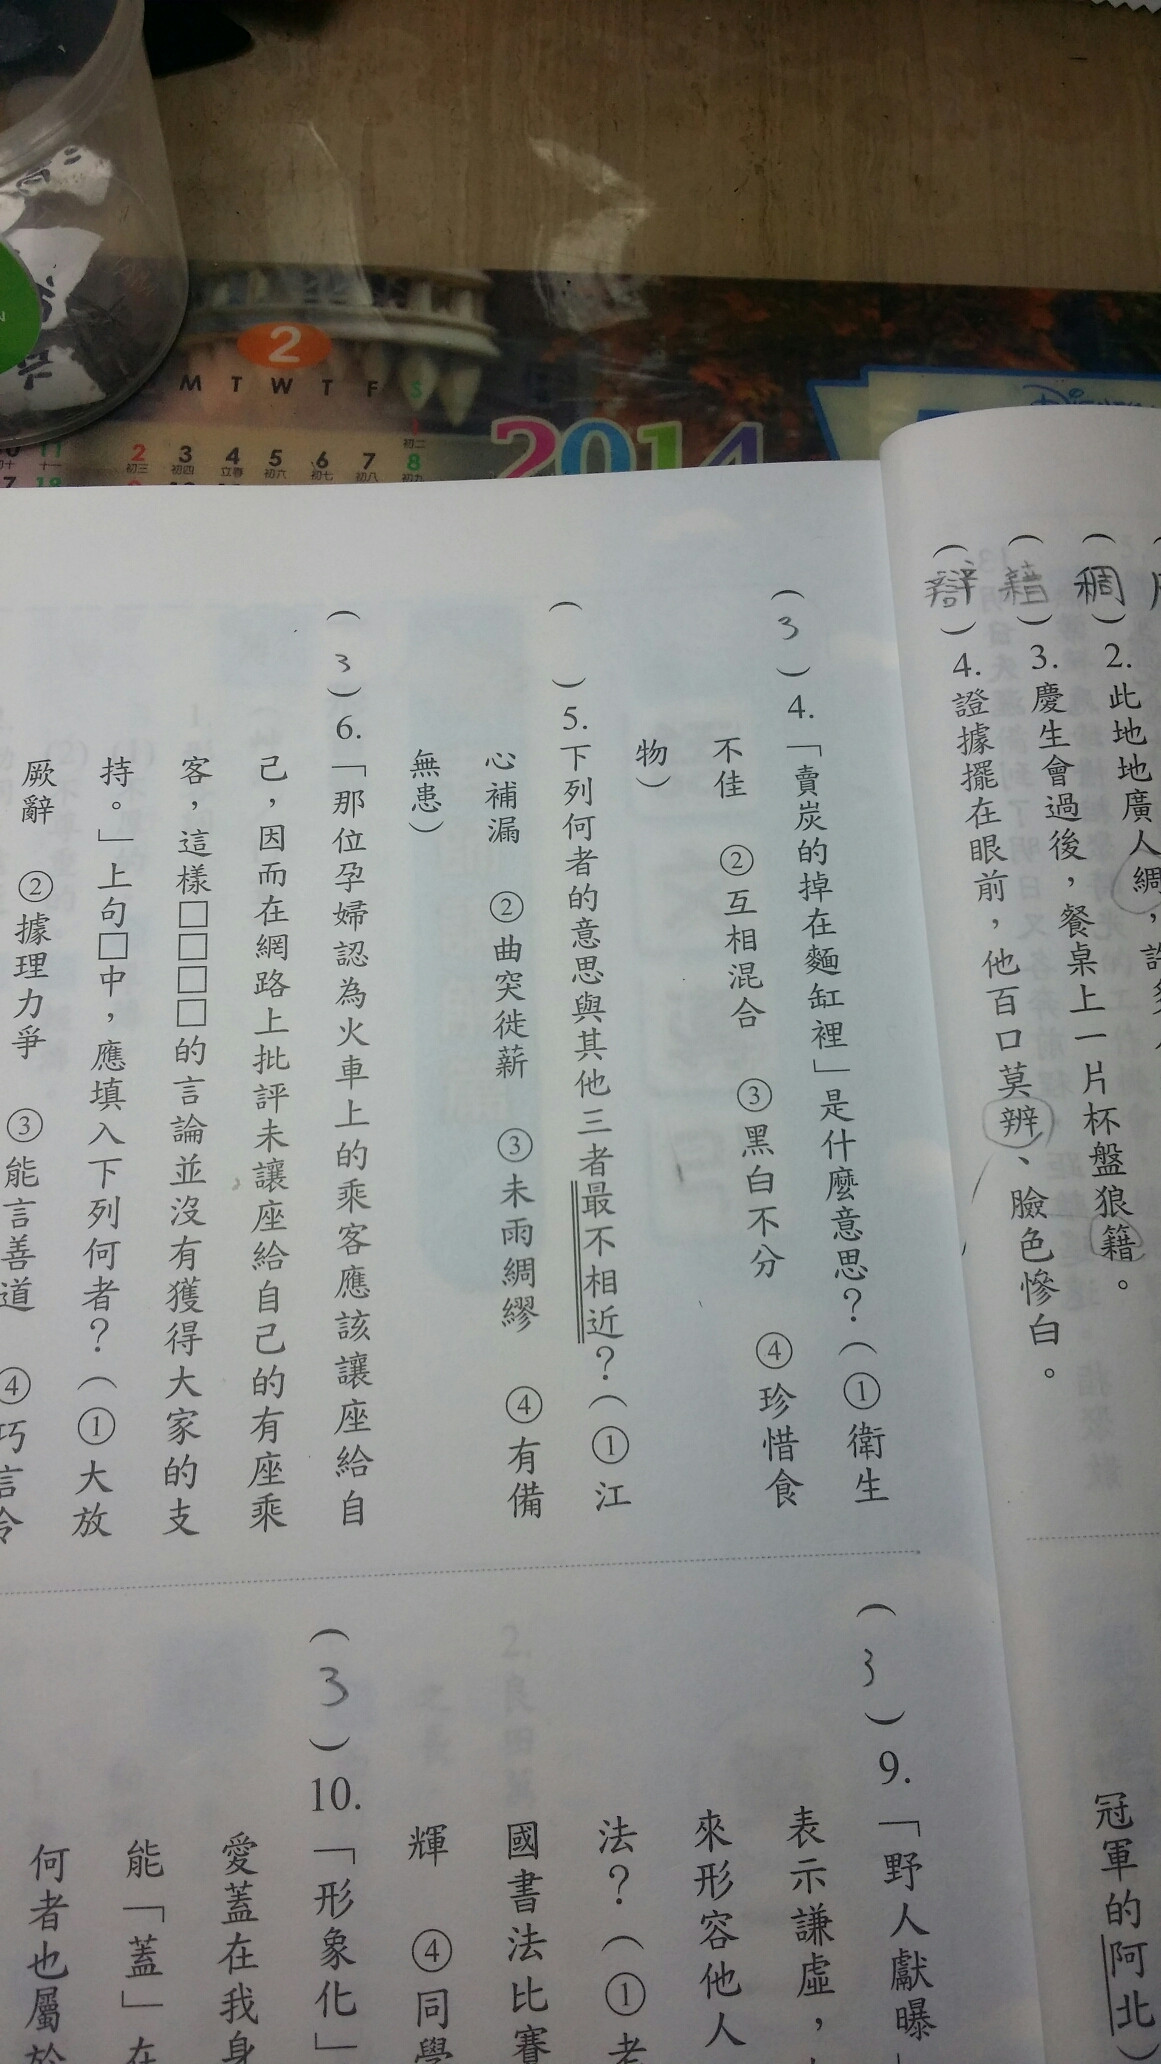 2
M T W T F S
1
初二
2 3 4 5 6 7 8
初三 初四 立春 初六 初七 初八 初九
2014
DISNEY
(稠)2.此地地廣人綢,
(籍)3.慶生會過後,餐桌上一片杯盤狼籍。
(辯)4.證據擺在眼前,他百口莫辨、臉色慘白。
(3)4.「賣炭的掉在麵缸裡」是什麼意思?(①衛生
不佳 ②互相混合 ③黑白不分 ④珍惜食
物)
( )5.下列何者的意思與其他三者最不相近?(①江
心補漏 ②曲突徙薪 ③未雨綢繆 ④有備
無患)
(3)6.「那位孕婦認為火車上的乘客應該讓座給自
己,因而在網路上批評未讓座給自己的有座乘
客,這樣□□□□的言論並沒有獲得大家的支
持。」上句□中,應填入下列何者?(①大放
厥辭 ②據理力爭 ③能言善道 ④巧言令
冠軍的阿北)
(3)9.「野人獻曝」
表示謙虛,
來形容他人
法?(①老
國書法比賽
輝 ④同學
(3)10.「形象化」
愛蓋在我身
能「蓋」在
何者也屬於